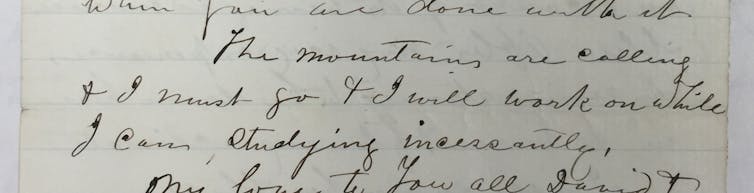 when you are done with it
The mountains are calling
& I must go & I will work on while
I can, studying incessantly.
My love to you all David &